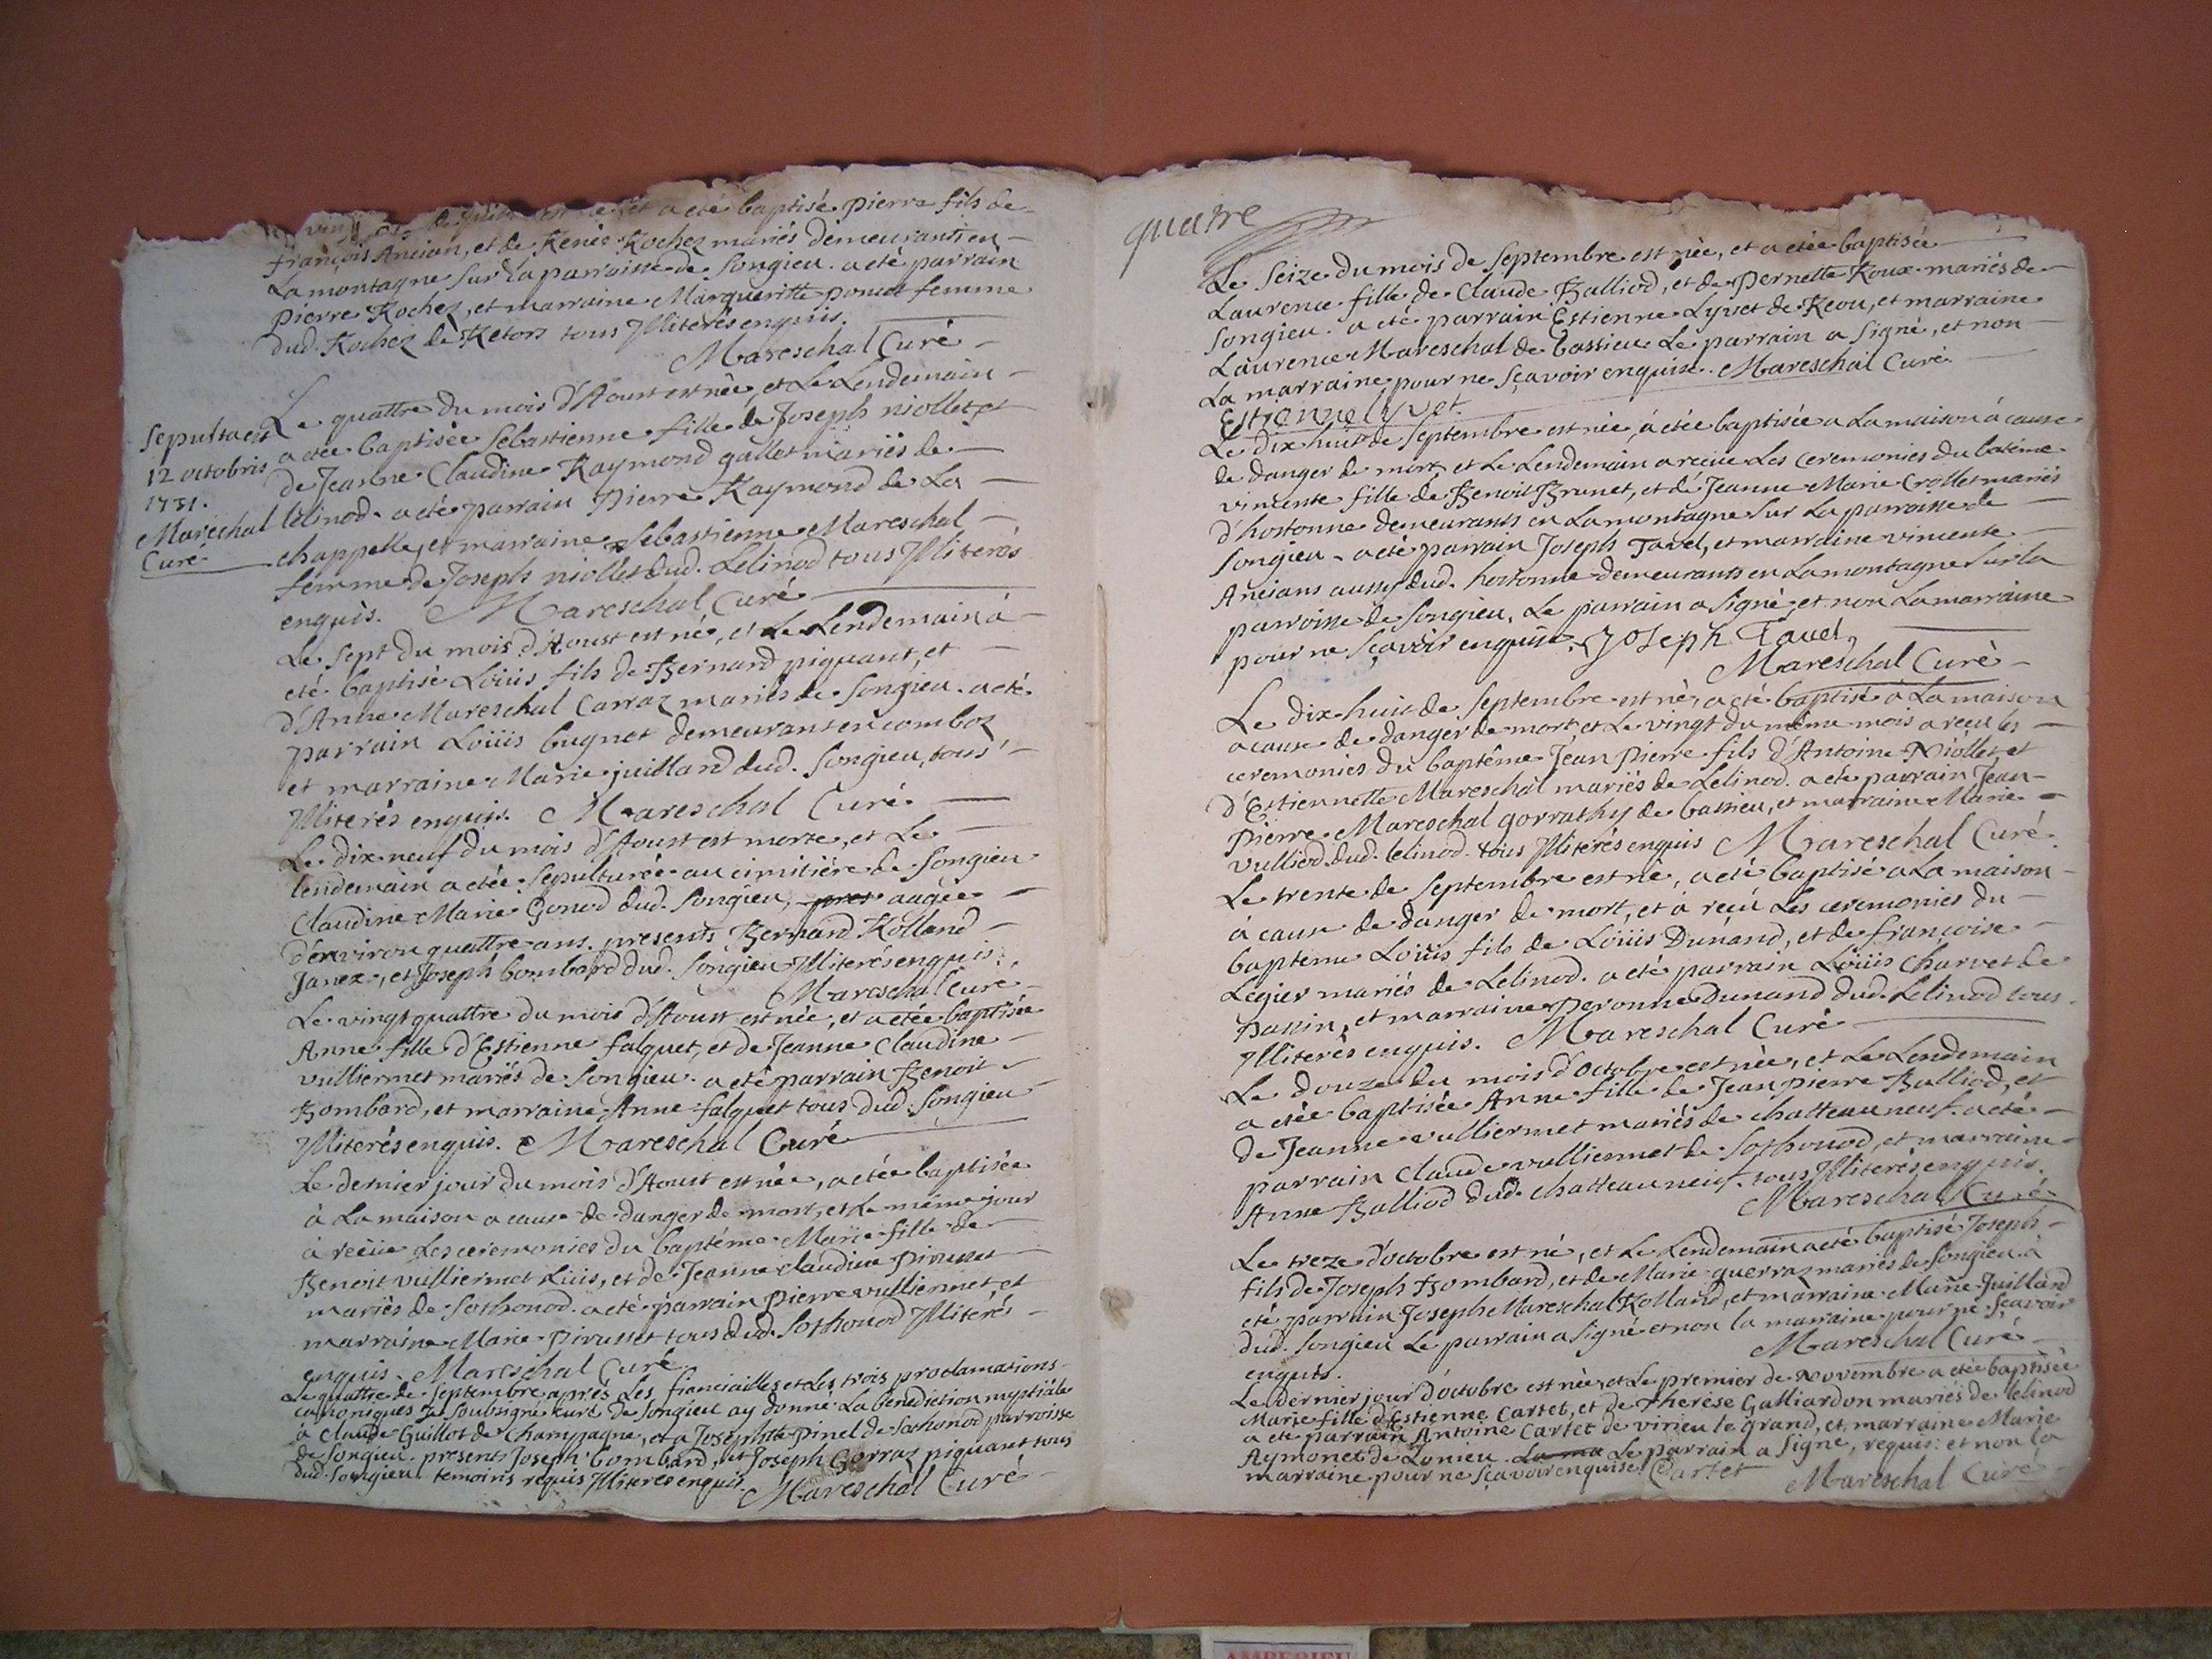 de est né, et a eté baptisé pierre fils de
françois Ancian, et de Renèe Rochez mariés demeurants en
La montagne sur la parroisse de Songieu. a eté parrain
pierre Rochez, et marraine Margueritte poncet femme
dud. Rochez de Retors tous Illiterés enquis.
Mareschal Curé
Le quattre du mois d'Aoust est née, et Le Lendemain
a etée baptisée Sebastienne fille de Joseph niollet, et
de Jeanne Claudine Raymond gallet mariés de
lelinod. a eté parrain Pierre Raymond de La
chappelle, et marraine Sebastienne Mareschal
femme de Joseph niollet dud. Lelinod tous Illiterés
enquis. Mareschal Curé
Sepulta est
12 octobris
1731.
Marechal
Curé
Le sept du mois d'Aoust est né, et Le Lendemain à
eté baptisé Loüis fils de Bernard piquant, et
d'Anne Mareschal Carraz mariés de Songieu. a eté
parrain Loüis bugnet demeurant en comboz
et marraine Marie juilland dud. Songieu, tous
Illiterés enquis. Mareschal Curé
Le dix neuf du mois d'Aoust est morte, et Le
lendemain a etée sepulturée au cimitiére de Songieu
Claudine Marie Gonod dud. Songieu, aagée
d'environ quattre ans. presents Bernard Rolland
Janex, et Joseph bombard dud. Songieu Illiterés enquis.
Mareschal Curé
Le vingt quattre du mois d'Aoust est née, et a etée baptisée
Anne fille d'Estienne falquet, et de Jeanne Claudine
vulliermet mariés de Songieu. a eté parrain Benoit
Bombard, et marraine Anne falquet tous dud. Songieu
Illiterés enquis. Mareschal Curé
Le dernier jour du mois d'Aoust est née, a etée baptisée
à La maison a cause de danger de mort, et Le méme jour
à reçüe Les ceremonies du baptéme Marie fille de
Benoit vulliermet Luis, et de Jeanne claudine Pirusset
mariés de Sothonod. a eté parrain Pierre vulliermet, et
marraine Marie Pirusset tous dud. Sothonod Illiterés
enquis. Mareschal Curé
Le quattre de septembre aprés Les fianciailles et Les trois proclamations
canoniques Je soubsigné curé de Songieu ay donné La benediction nuptiale
à Claude Guillot de Champagne, et a Josephte Pinel de Sothonod parroisse
de Songieu. presents Joseph bombard, et Joseph Gorraz piquant tous
dud. Songieu temoins requis Illiterés enquis.
Mareschal Curé
quatre
Le seize du mois de Septembre est née, et a etée baptisée
Laurence fille de Claude Balliod, et de Pernette Roux mariés de
Songieu. a eté parrain Estienne Lyvet de Reou, et marraine
Laurence Mareschal de bassieu Le parrain a signé, et non
La marraine pour ne sçavoir enquise. Mareschal Curé
Estienne lyvet.
Le dix huit de septembre est née, à etée baptisée a La maison à cause
de danger de mort, et Le Lendemain a reçue Les ceremonies du batéme
vincente fille de Benoit Brunet, et de Jeanne Marie Crollet mariés
d'hostonne demeurants en La montagne sur La parroisse de
Songieu. a eté parrain Joseph Tavel, et marraine vincente
Ancians aussy dud. hostonne demeurants en La montagne sur la
parroisse de Songieu. Le parrain a signé, et non La marraine
pour ne sçavoir enquise. Joseph Tavel
Mareschal Curé
Le dix-huit de Septembre est né, a eté baptisé à La maison
a cause de danger de mort, et Le vingt du même mois a reçu les
ceremonies du baptême Jean Pierre fils d'Antoine Niollet, et
d'Estiennette Mareschal mariés de Lelinod. a eté parrain Jean
Pierre Mareschal gorrathy de bassieu, et marraine Marie
vulliod dud. lelinod. tous Illiterés enquis Mareschal Curé
Le trente de septembre est né, a eté baptisé a La maison
à cause de danger de mort, et à reçu Les ceremonies du
baptême Loüis fils de Loüis Dunand, et de françoise
Legier mariés de Lelinod. a eté parrain Loüis Charvet de
Passin, et marraine Peronne Dunand dud. Lelinod tous
Illiterés enquis. Mareschal Curé
Le Douze du mois d'octobre est née, et Le Lendemain
a etée baptisée Anne fille de Jean pierre Balliod, et
de Jeanne vulliermet mariés de chatteauneuf. a eté
parrain Claude vulliermet de Sothonod, et marraine
Anne Balliod dud. chatteauneuf. tous Illiterés enquis.
Mareschal Curé
Le treze d'octobre est né, et Le Lendemain a eté baptisé Joseph
fils de Joseph Bombard, et de Marie guerraz mariés de Songieu. à
eté parrain Joseph Mareschal Rolland, et marraine Marie Juilland
dud. Songieu Le parrain a signé et non la marraine pour ne sçavoir
enquis. Mareschal Curé
Le dernier jour d'octobre est née, et Le premier de Novembre a etée baptisée
Marie fille d'Estienne Cartet, et de Therèse Galliardon mariés de lelinod
a eté parrain Antoine Cartet de virieu le grand, et marraine Marie
Aymonet de Lonieu. La ma Le parrain a signé, requis: et non la
marraine pour ne sçavoir enquise. Cartet Mareschal Curé